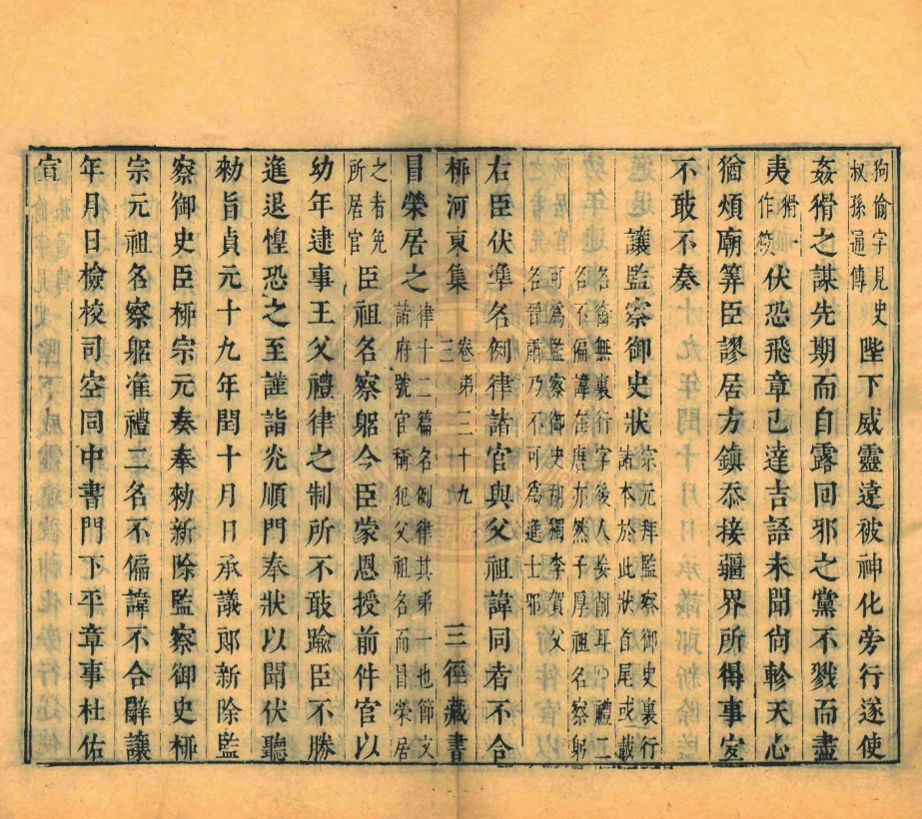 狗偷字見史
叔孫通傳
陛下威靈遠被神化旁行遂使
姦猾之謀先期而自露回邪之黨不戮而盡
夷
猾一
作
伏恐飛章已達吉語未聞尙軫天心
猶煩廟筭臣謬居方鎮忝接疆界所得事宜
不敢不奏
讓監察御史狀
宗元拜監察御史裏行
諸本於此狀首尾或載
名銜無裏行字後人妄削耳曲禮二
名不偏諱在唐亦然子厚祖名察躬
可爲監察御史胡獨李賀父
名晉肅乃不可爲進士邪
右臣伏準名例律諸官與父祖諱同者不合
柳河東集
卷第三十九
三
三徑藏書
冒榮居之
律十二篇名例律其弟一也節文
諸府號官稱犯父祖名而冒榮居
之者免
所居官
臣祖名察躬今臣蒙恩授前件官以
幼年逮事王父禮律之制所不敢踰臣不勝
進退惶恐之至謹詣光順門奉狀以聞伏聽
勑旨貞元十九年閏十月日承議郎新除監
察御史臣柳宗元奏奉勑新除監察御史柳
宗元祖名察躬准禮二名不偏諱不合辭讓
年月日檢校司空同中書門下平章事杜佑
宣